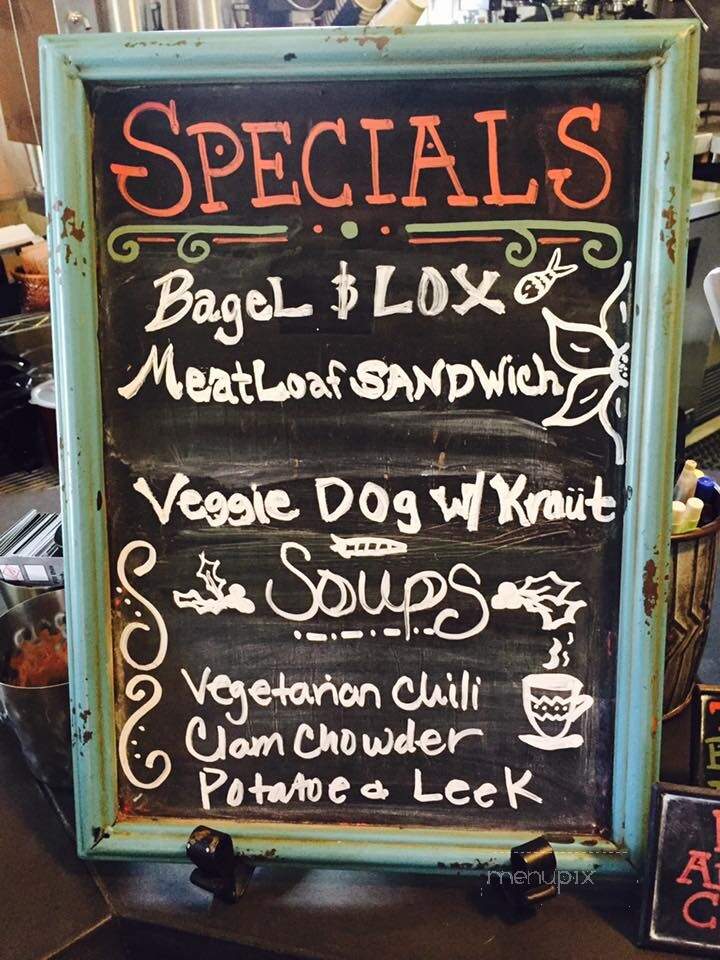 SPECIALS
BageL & LOX
MeatLoaf SANDWich
Veggie Dog w/ Kraüt
Soups
Vegetarian Chili
Clam Chowder
Potatoe & Leek
menupix